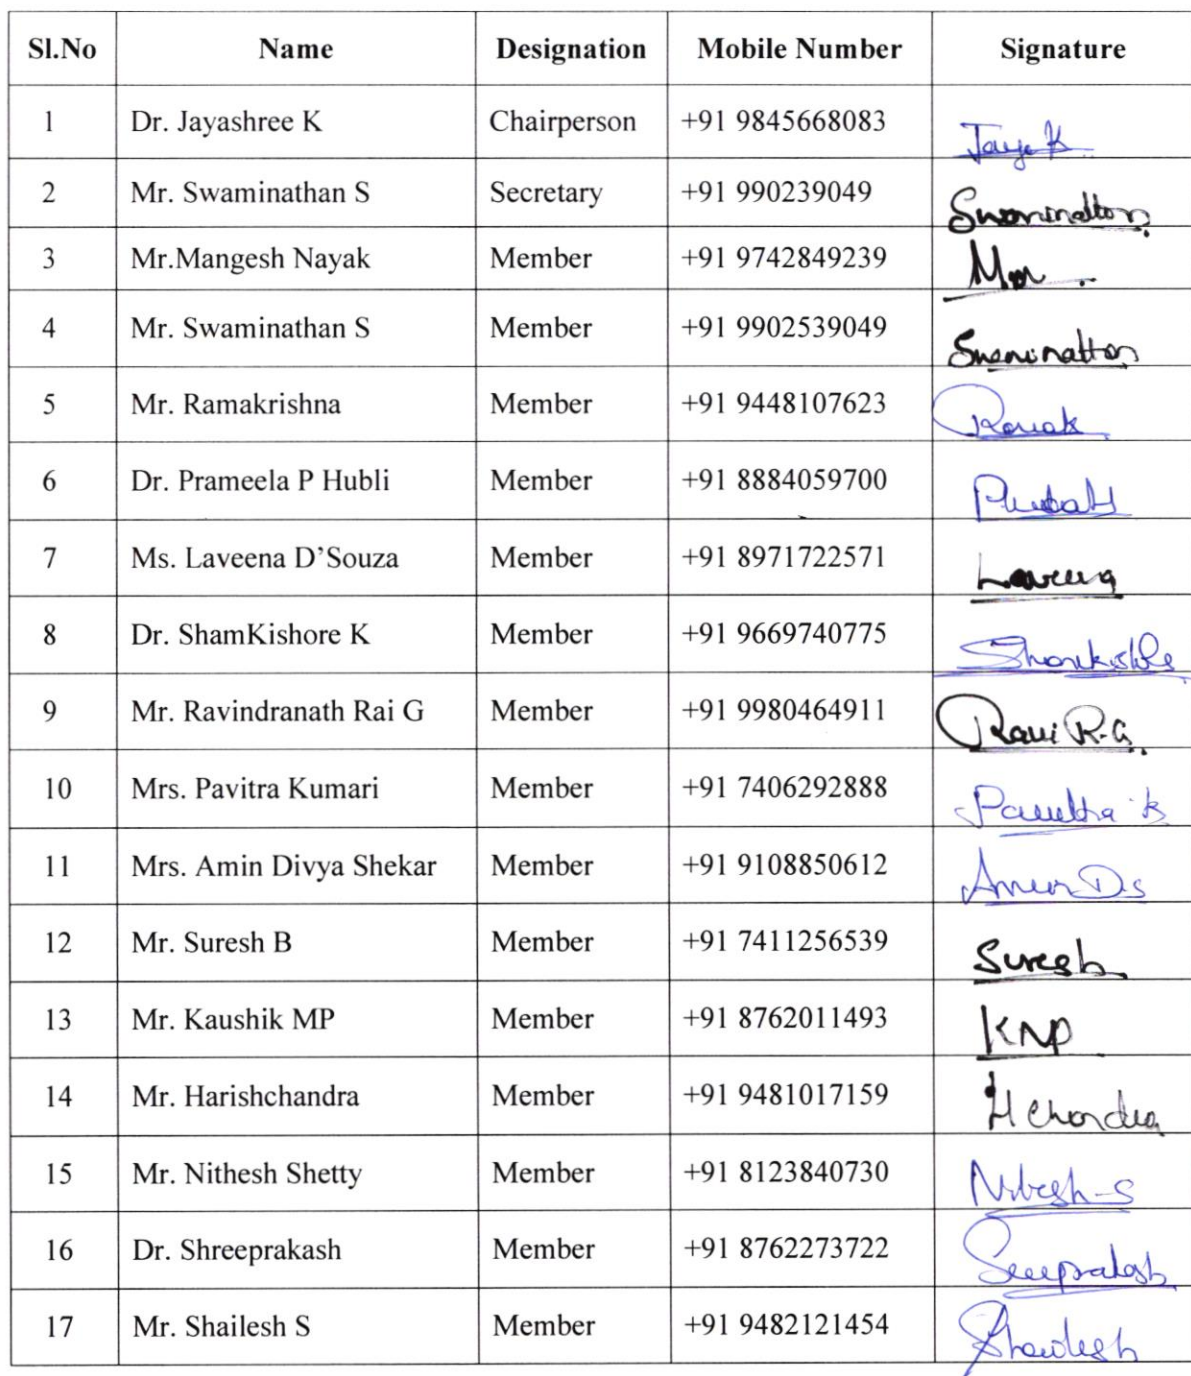 Sl.No Name Designation Mobile Number Signature
1 Dr. Jayashree K Chairperson +91 9845668083 Jaya K
2 Mr. Swaminathan S Secretary +91 990239049 Swaminathan
3 Mr.Mangesh Nayak Member +91 9742849239
4 Mr. Swaminathan S Member +91 9902539049 Swaminathan
5 Mr. Ramakrishna Member +91 9448107623
6 Dr. Prameela P Hubli Member +91 8884059700
7 Ms. Laveena D’Souza Member +91 8971722571 Laveena
8 Dr. ShamKishore K Member +91 9669740775
9 Mr. Ravindranath Rai G Member +91 9980464911 Ravi R.G.
10 Mrs. Pavitra Kumari Member +91 7406292888
11 Mrs. Amin Divya Shekar Member +91 9108850612 Amin D.S
12 Mr. Suresh B Member +91 7411256539 Suresh
13 Mr. Kaushik MP Member +91 8762011493
14 Mr. Harishchandra Member +91 9481017159 H Chandra
15 Mr. Nithesh Shetty Member +91 8123840730
16 Dr. Shreeprakash Member +91 8762273722
17 Mr. Shailesh S Member +91 9482121454 Shailesh